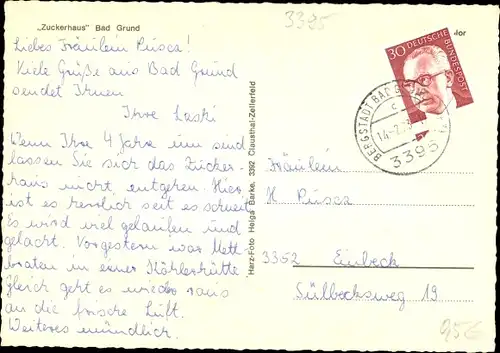 „Zuckerhaus" Bad Grund
3395
lor
30 DEUTSCHE BUNDESPOST
BERGSTADT BAD GRUND
c
14.-2.73
3395
Liebes Fräulein Pusca!
Viele Grüße aus Bad Grund
sendet Ihnen
Ihre Laski
Wenn Ihre 4 Jahre um send
lassen Sie sich das Zucker-
haus nicht entgehen. Hier
ist es herrlich seit es schneit
Es wird viel gelaufen und
gelacht. Vorgestern war Mett
braten in einer Köhlerhütte
Gleich geht es wieder raus
an die frische Luft.
Weiteres mündlich.
Harz-Foto Helga Barke, 3392 Clausthal-Zellerfeld
Fräulein
H Pusca
3352 Einbeck
Sülbecksweg 19
956